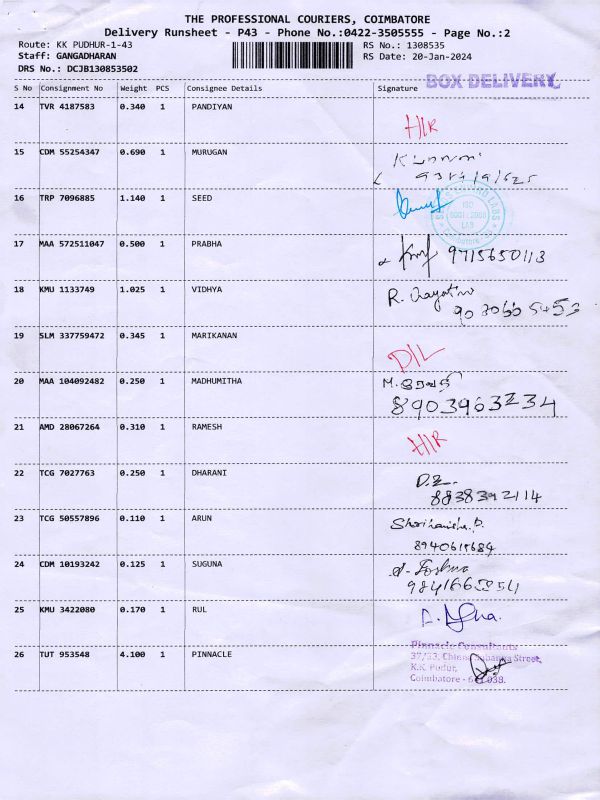 THE PROFESSIONAL COURIERS, COIMBATORE
Delivery Runsheet - P43 - Phone No.:0422-3505555 - Page No.:2
Route: KK PUDHUR-1-43 RS No.: 1308535
Staff: GANGADHARAN RS Date: 20-Jan-2024
DRS No.: DCJB130853502
BOX DELIVERY
S No Consignment No Weight PCS Consignee Details Signature
14 TVR 4187583 0.340 1 PANDIYAN
15 CDM 55254347 0.690 1 MURUGAN
16 TRP 7096885 1.140 1 SEED
17 MAA 572511047 0.500 1 PRABHA
9715650113
18 KMU 1133749 1.025 1 VIDHYA
R. Gayatri
19 SLM 337759472 0.345 1 MARIKANAN
D/L
20 MAA 104092482 0.250 1 MADHUMITHA
8903963234
21 AMD 28067264 0.310 1 RAMESH
22 TCG 7027763 0.250 1 DHARANI
8838392114
23 TCG 50557896 0.110 1 ARUN
8940615684
24 CDM 10193242 0.125 1 SUGUNA
25 KMU 3422080 0.170 1 RUL
26 TUT 953548 4.100 1 PINNACLE
Pinnacle Consultants
Street,
K.K. Pudur,
Coimbatore -